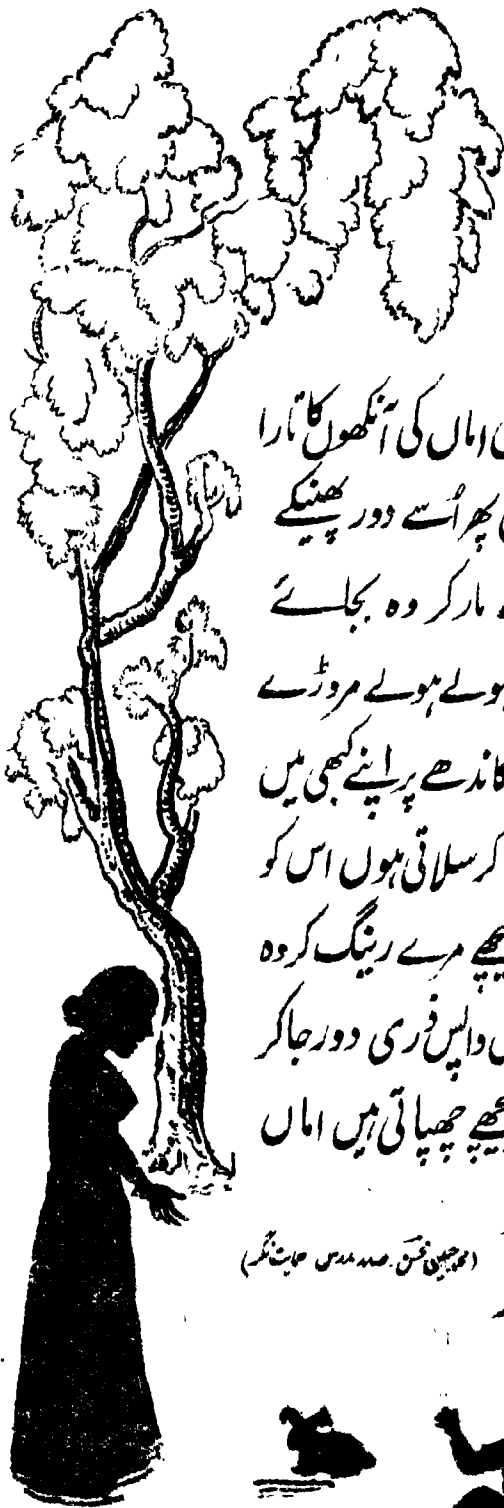 اماں کی آنکھوں کا تارا
پھر اُسے دور پھینکے
مار کر وہ بجائے
ہولے ہولے مروڑے
کاندھے پر اپنے کبھی میں
کر سلاتی ہوں اس کو
پیچھے مرے رینگ کر وہ
واپس ذری دور جا کر
پیچھے چھپاتی ہیں اماں
صدر مدرس حمایت نگر)